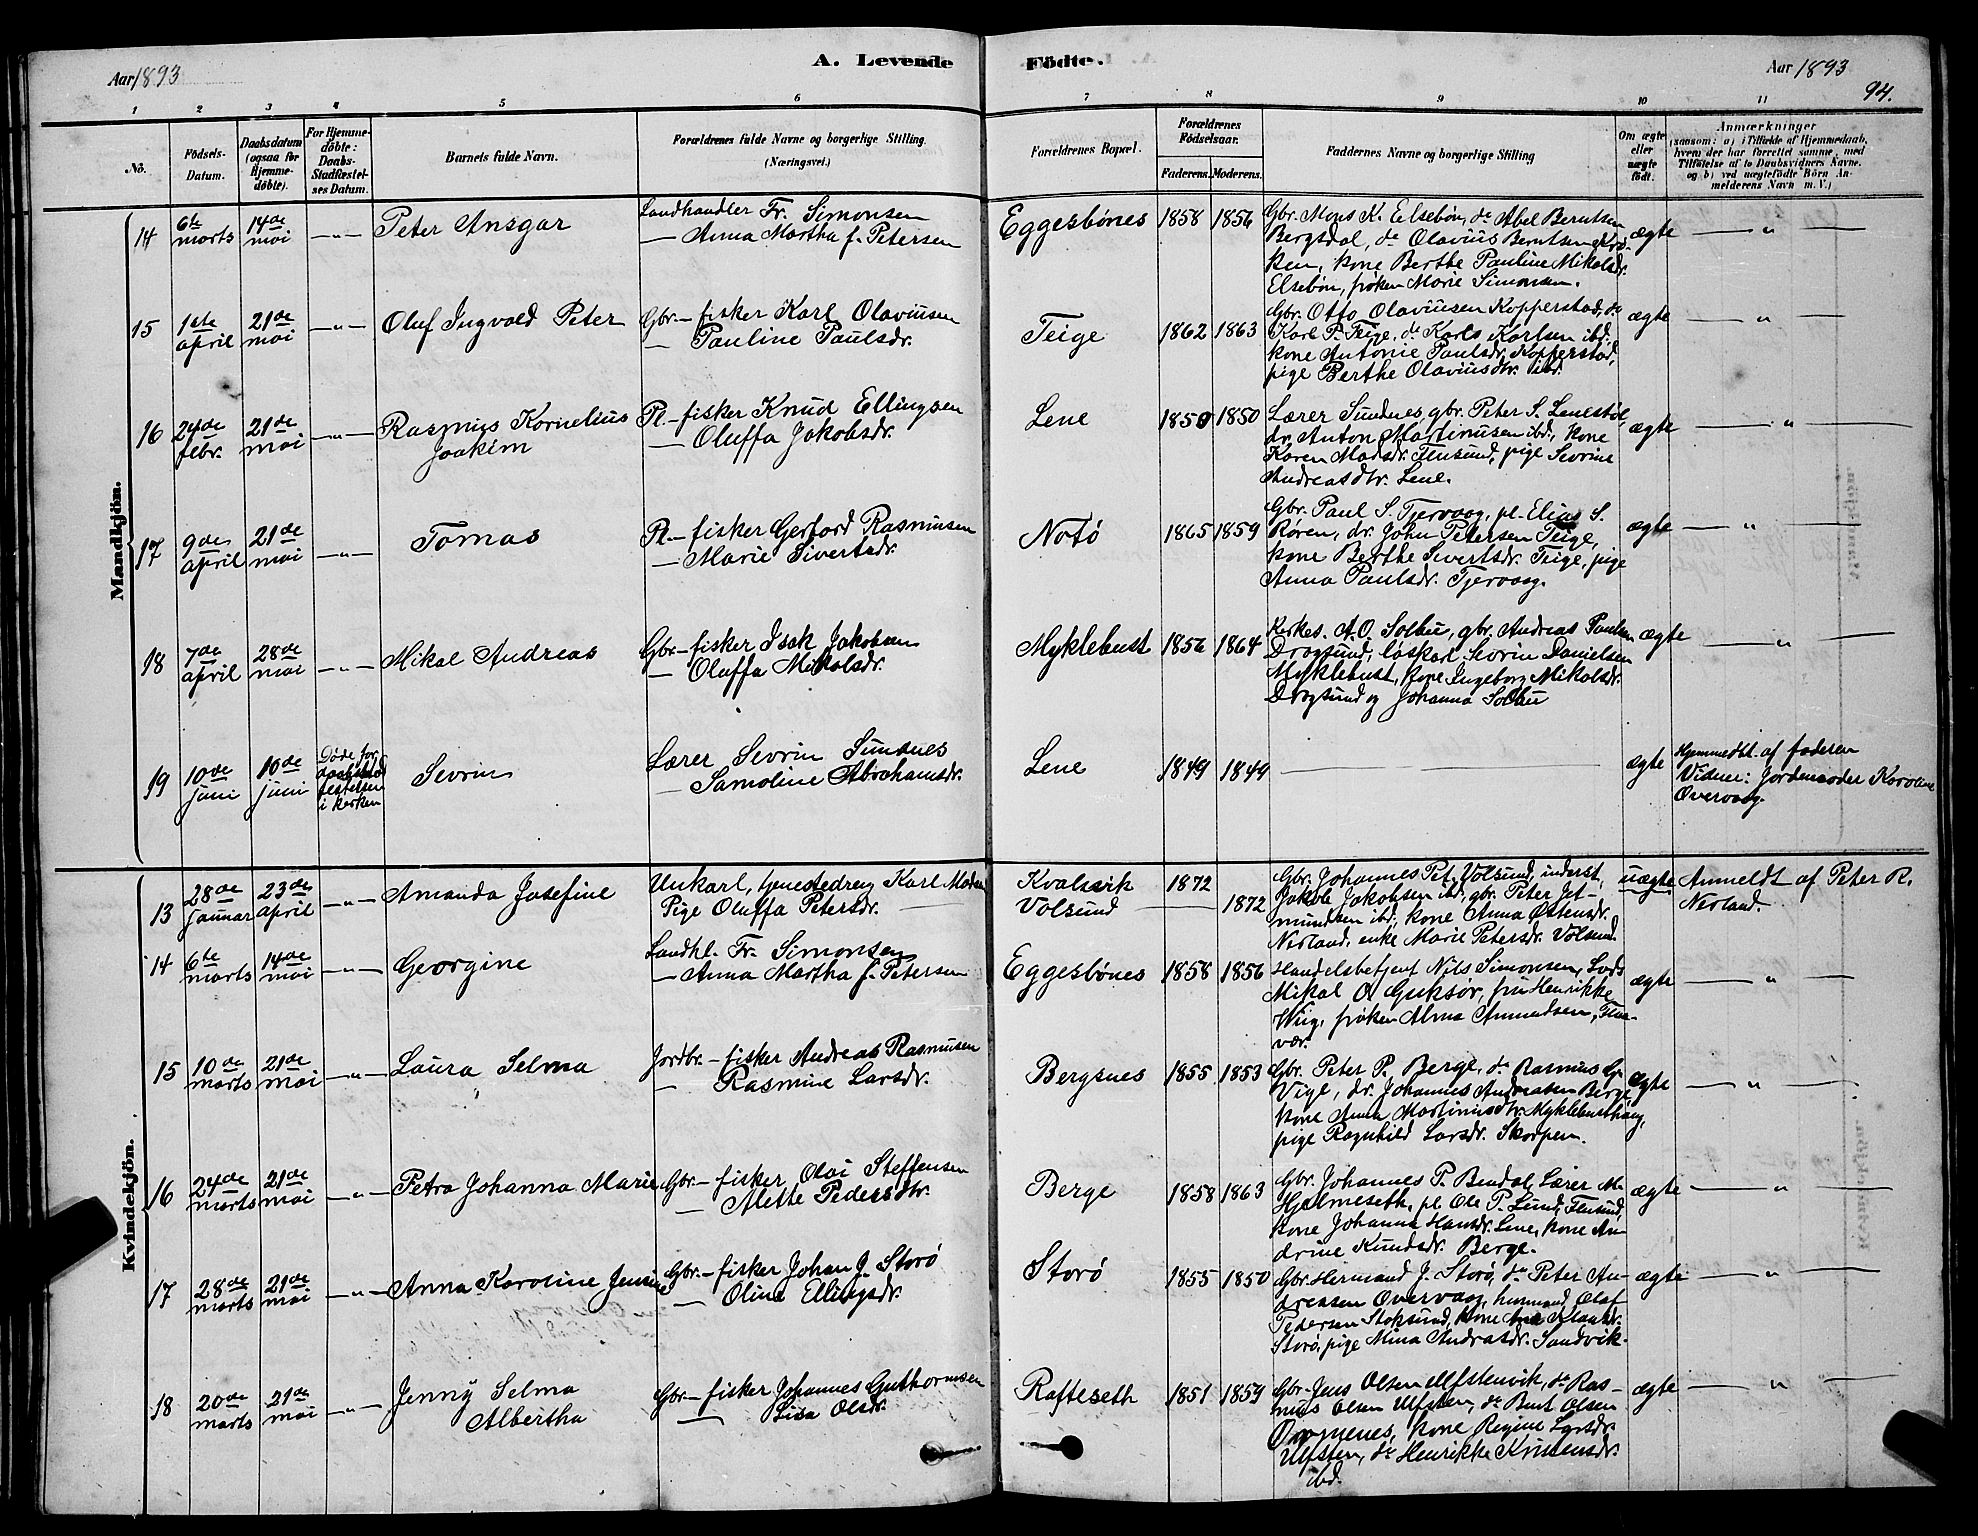 Aar 1893
A. Levende
Födte.
Aar 1893
94.
1 2 3 4 5 6 7 8 9 10 11
No.
Födsels-
Datum.
Daabsdatum
(ogsaa for
Hjemme-
döbte).
For Hjemme-
döbte:
Daabs-
Stadfæstel-
ses Datum.
Barnets fulde Navn.
Forældrenes fulde Navne og borgerlige Stilling.
(Næringsvei.)
Forældrenes Bopæl.
Forældrenes
Födselsaar.
Faderens. Moderens.
Faddernes Navne og borgerlige Stilling
Om ægte
eller
uægte
födt.
Anmærkninger
(saasom: a) i Tilfælde af Hjemmedaab,
hvem der har forrettet samme, med
Tilföielse af to Daabsvidners Navne.
og b) ved uægtefödte Börn An-
melderens Navn m. V.)
Mandkjön.
14
6te
marts
14de
mai
— „ —
Peter Ansgar
Landhandler Fr. Simonsen
— Anna Martha f. Petersen
Eggesbönes
1858 1856
Gbr. Mons K. Elsebön, do Abel Berntsen
Bergsdal, do Olavius Berntsen Kro-
ken, kone Berthe Pauline Mikalsdr.
Elsebön, fröken Marie Simonsen.
ægte
— „ —
15
1ste
april
21de
mai
— „ —
Oluf Ingvald Peter
Gbr.– fisker Karl Olaviusen
— Pauline Paulsdr.
Teige
1862 1863
Gbr. Otto Olaviusen Kopperstad, do
Karl P. Teige, do Karls Karlsen ibd.
kone Antonie Paulsdr. Kopperstad,
pige Berthe Olaviusdtr. ibd.
ægte
— „ —
16
24de
febr.
21de
mai
— „ —
Rasmus Kornelius
Joakim
Pl.– fisker Knud Ellingsen
— Oluffa Jakobsdr.
Lene
1850 1850
Lærer Sundnes, gbr. Peter S. Lenestöl,
dr. Anton Martinusen ibd., kone
Karen Madsdr. Flusund, pige Sevrine
Andreasdtr. Lene.
ægte
— „ —
17
9de
april
21de
mai
— „ —
Tomas
Pl.– fisker Gerhard Rasmusen
— Marie Sivertsdr.
Notö
1865 1859
Gbr. Paul S. Tjervaag, pl. Elias S.
Rören, dr. John Petersen Teige,
kone Berthe Sivertsdr. Teige, pige
Anna Paulsdr. Tjervaag.
ægte
— „ —
18
7de
april
28de
mai
— „ —
Mikal Andreas
Gbr.– fisker Isak Jakobsen
— Oluffa Mikalsdr.
Myklebust
1856 1864
Kirkes. A. O. Solbu, gbr. Andreas Paulsen
Dragsund, löskarl Sevrin Danielsen
Myklebust, kone Ingeborg Mikalsdr.
Dragsund og Johanna Solbu
ægte
— „ —
19
10de
juni
10de
juni
Döde for
daabsstad
festelsen
i kirken
Sevrin
Lærer Sevrin Sundnes
— Samoline Abrahamsdr.
Lene
1849 1849
ægte
Hjemmedöbt af faderen
Vidner: Jordemoder Karoline
Overvaag.
Kvindekjön.
13
28de
januar
23de
april
— „ —
Amanda Josefine
Unkarl, tjenestedreng Karl Madsen
Pige Oluffa Petersdr.
Kvalsvik
Volsund
1872
1872
Gbr. Johannes Pet. Volsund, inderst,
Jakob Jakobsen ibd., gbr. Peter Jet-
mundsen ibd., kone Anna Östensdr.
Nerland, enke Marie Petersdr. Volsund.
uægte
Anmeldt af Peter R.
Nerland.
14
6te
marts
14de
mai
— „ —
Georgine
Landhl. Fr. Simonsen
— Anna Martha f. Petersen
Eggesbönes
1858 1856
Handelsbetjent Nils Simonsen, Lods
Mikal O. Guksör, fru Henrikke
Wiig, fröken Alma Amundsen, Flaa-
vær.
ægte
— „ —
15
10de
marts
21de
mai
— „ —
Laura Selma
Jordbr.– fisker Andreas Rasmusen
— Rasmine Larsdr.
Bergsnes
1855 1853
Gbr. Peter P. Berge, do Rasmus Gr.
Vige, dr. Johannes Andreasen Berge,
kone Anna Martinusdtr. Myklebusthaug,
pige Ragnhild Larsdr. Skorpen.
ægte
— „ —
16
24de
marts
21de
mai
— „ —
Petra Johanna Marie
Gbr.– fisker Olai Steffensen
— Mette Pedersdtr.
Berge
1858 1863
Gbr. Johannes P. Bendal, Lærer M.
Hjelmeseth, pl. Ole P. Lund, Flusund,
kone Johanna Hansdr. Lene, kone An-
drine Knudsdr. Berge.
ægte
— „ —
17
28de
marts
21de
mai
— „ —
Anna Karoline Jensine
Gbr.– fisker Johan J. Storö
— Olina Ellingsdr.
Storö
1855 1850
Gbr. Hermand J. Storö, do Peter An-
dreasen Overvaag, husmand Olaf
Pedersen Stoksund, kone
Storö, pige Mina Andreasdr. Sandvik.
ægte
— „ —
18
20de
marts
21de
mai
— „ —
Jenny Selma
Albertha
Gbr.– fisker Johannes Guthormsen
— Lisa Olsdr.
Rafteseth
1851 1859
Gbr. Jens Olsen Ulfstenvik, do Ras-
mus Olsen Ulfsten, do Bent Olsen
kone Regine Larsdr.
Ulfsten, do Henrikke Kristensdr.
ibd.
ægte
— „ —